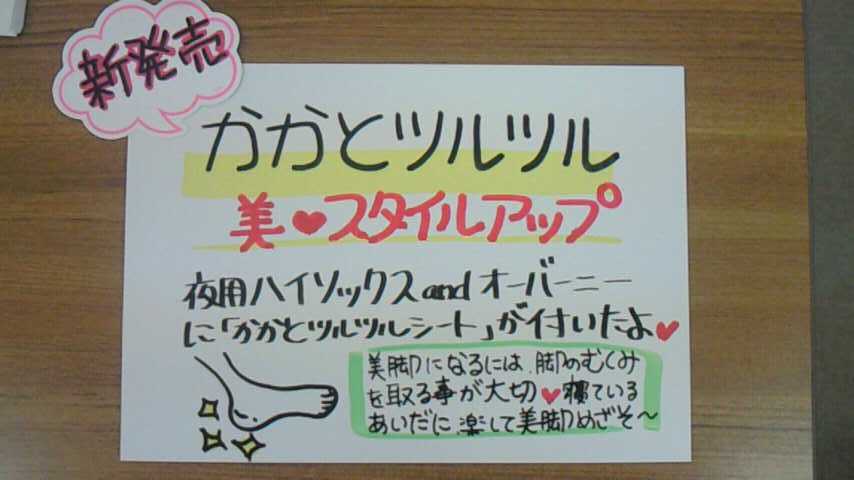 新発売
かかとツルツル
美♥スタイルアップ
夜用ハイソックスandオーバーニー
に「かかとツルツルシート」が付いたよ♥
美脚になるには、脚のむくみ
を取る事が大切♥寝ている
あいだに、楽して美脚めざそ〜